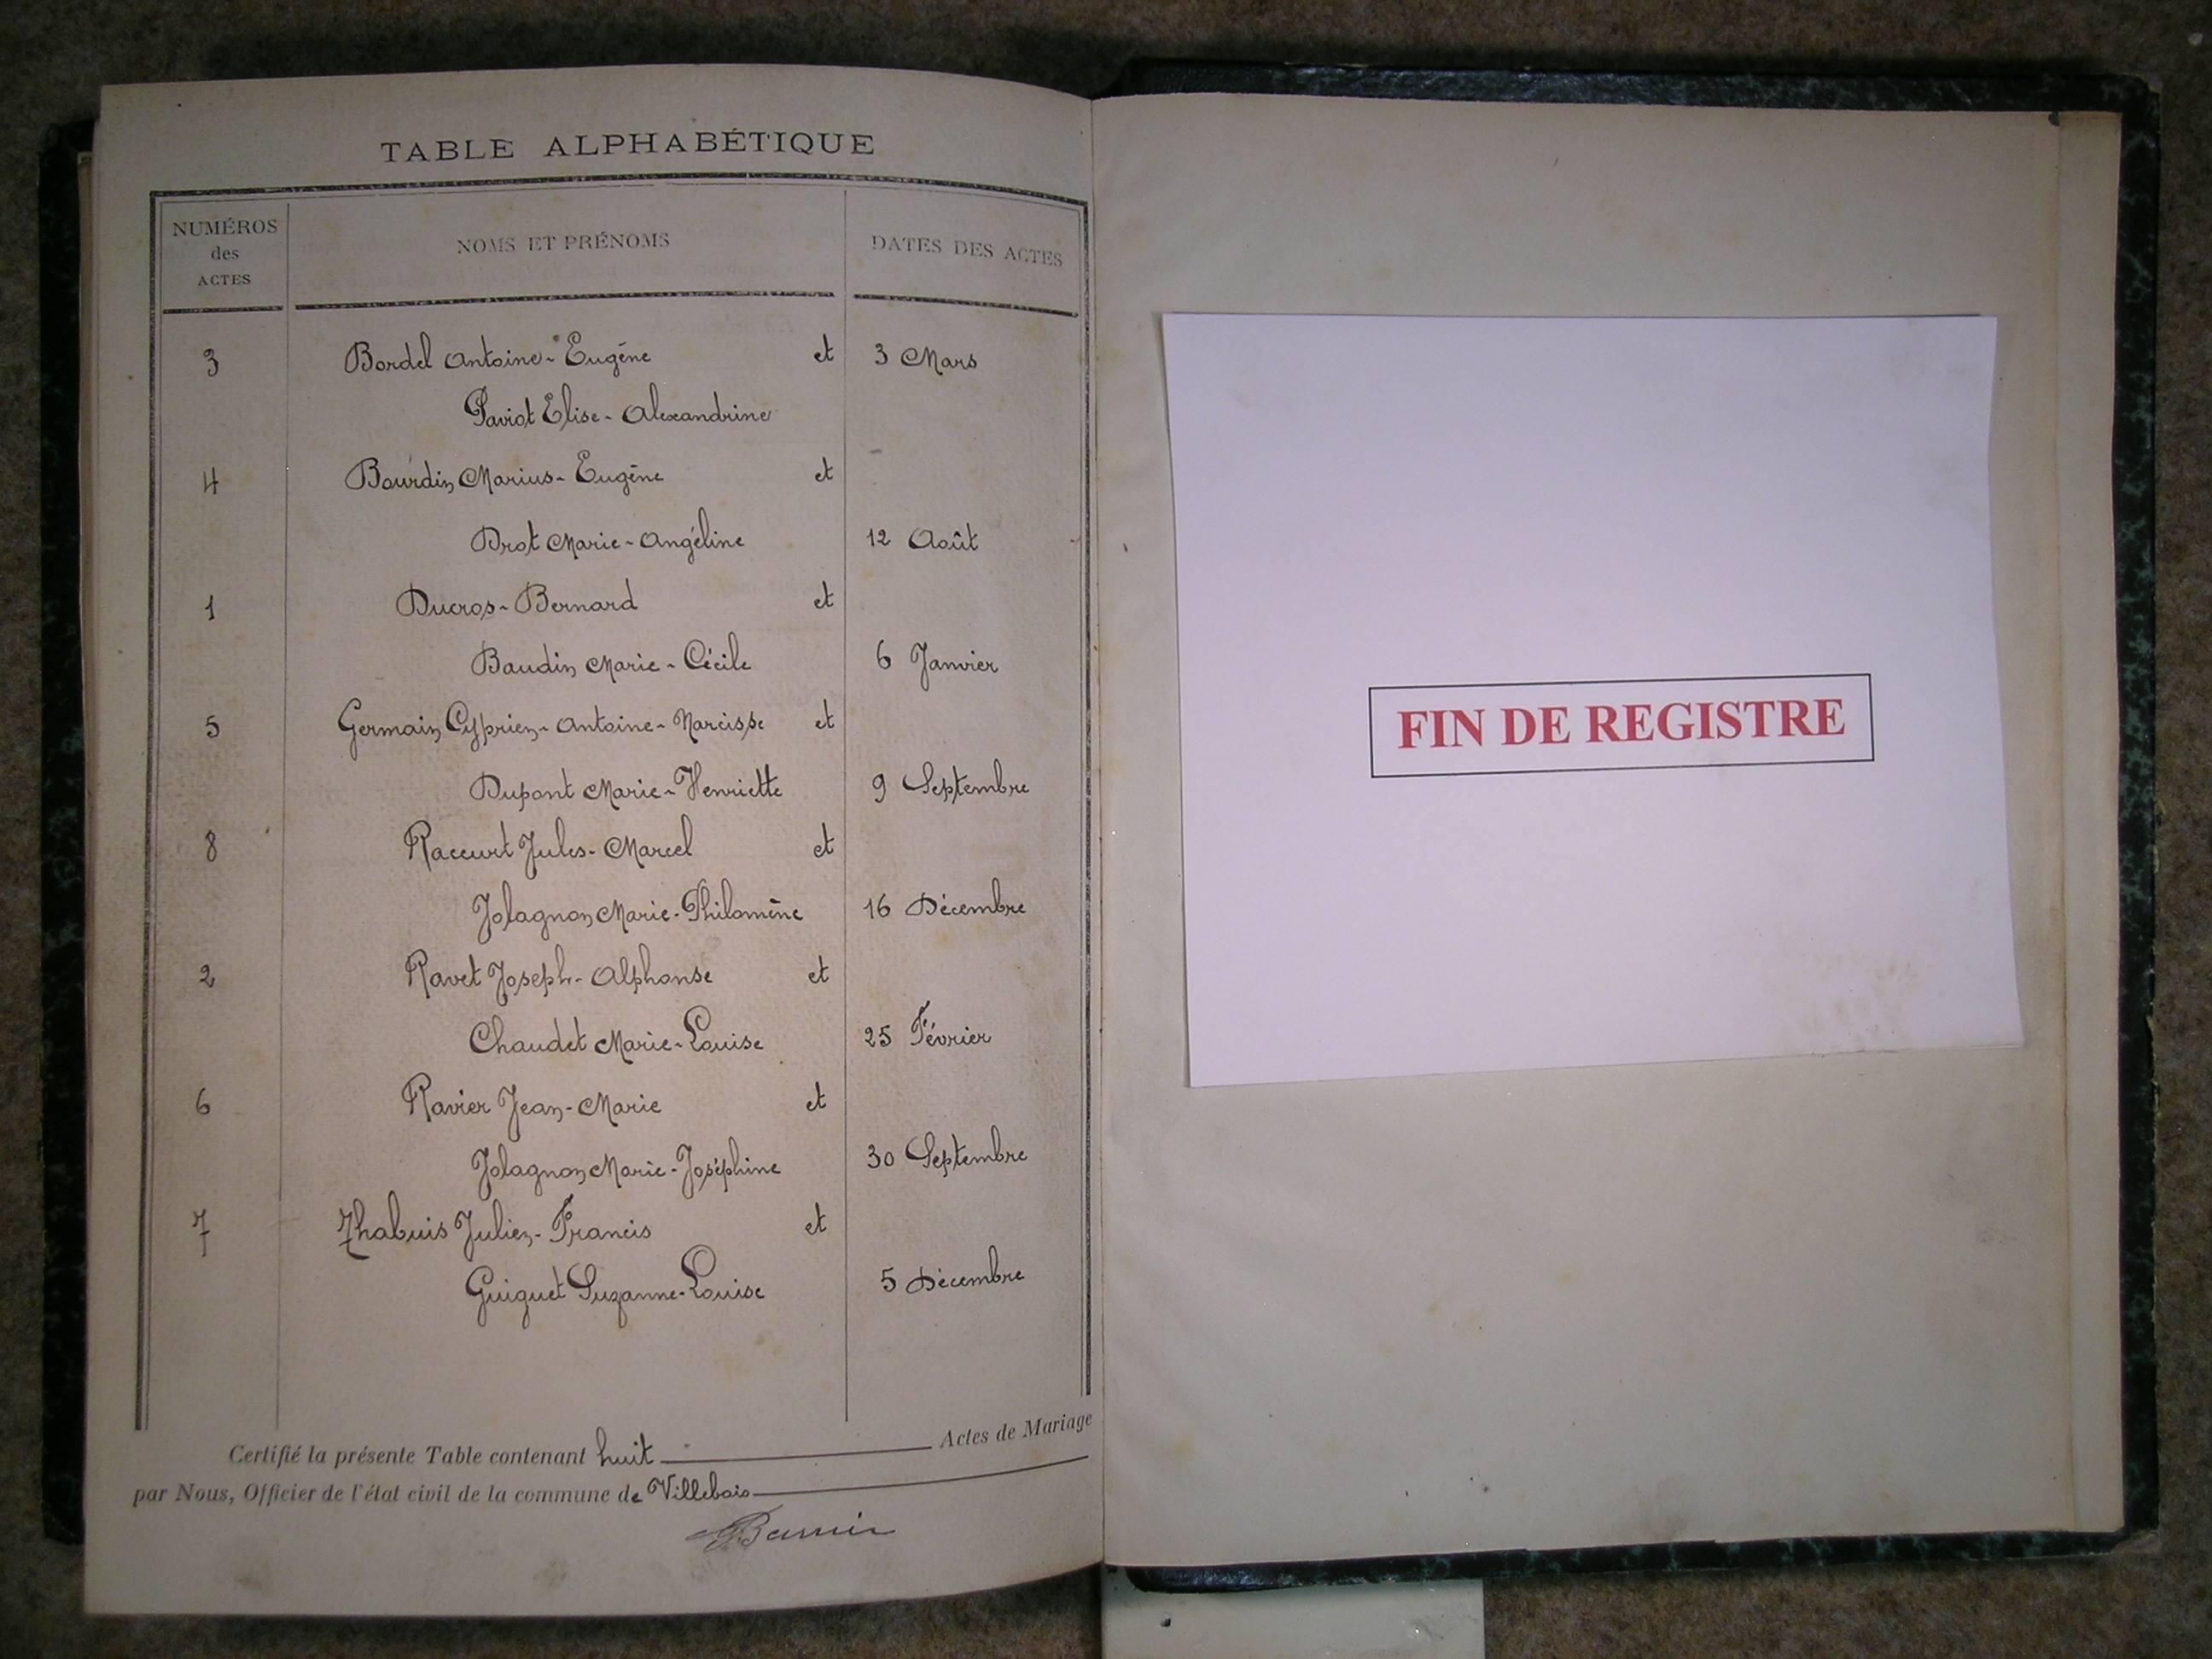 TABLE ALPHABÉTIQUE
NUMÉROS des ACTES NOMS ET PRÉNOMS DATES DES ACTES
3 Bordel Antoine-Eugène et 3 Mars
Paviot Elise-Alexandrine
4 Bourdin Marius-Eugène et
Drot Marie-Angéline 12 Août
1 Ducros-Bernard et
Baudin Marie-Cécile 6 Janvier
5 Germain Cyprien-Antoine-Narcisse et
Dupont Marie-Henriette 9 Septembre
8 Raccurt Jules-Marcel et
Jolagnon Marie-Philomène 16 Décembre
2 Ravet Joseph-Alphonse et
Chaudet Marie-Louise 25 Février
6 Ravier Jean-Marie et
Jolagnon Marie-Joséphine 30 Septembre
7 Thabuis Julien-Francis et
Guiguet Suzanne-Louise 5 Décembre
Certifié la présente Table contenant huit Actes de Mariage
par Nous, Officier de l'état civil de la commune de Villebois
FIN DE REGISTRE